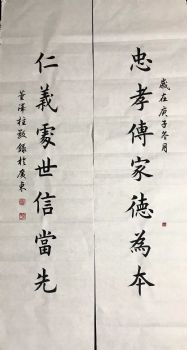 歲在庚子冬月
忠孝傳家德為本
仁義處世信當先
董澤柱敬錄於廣東